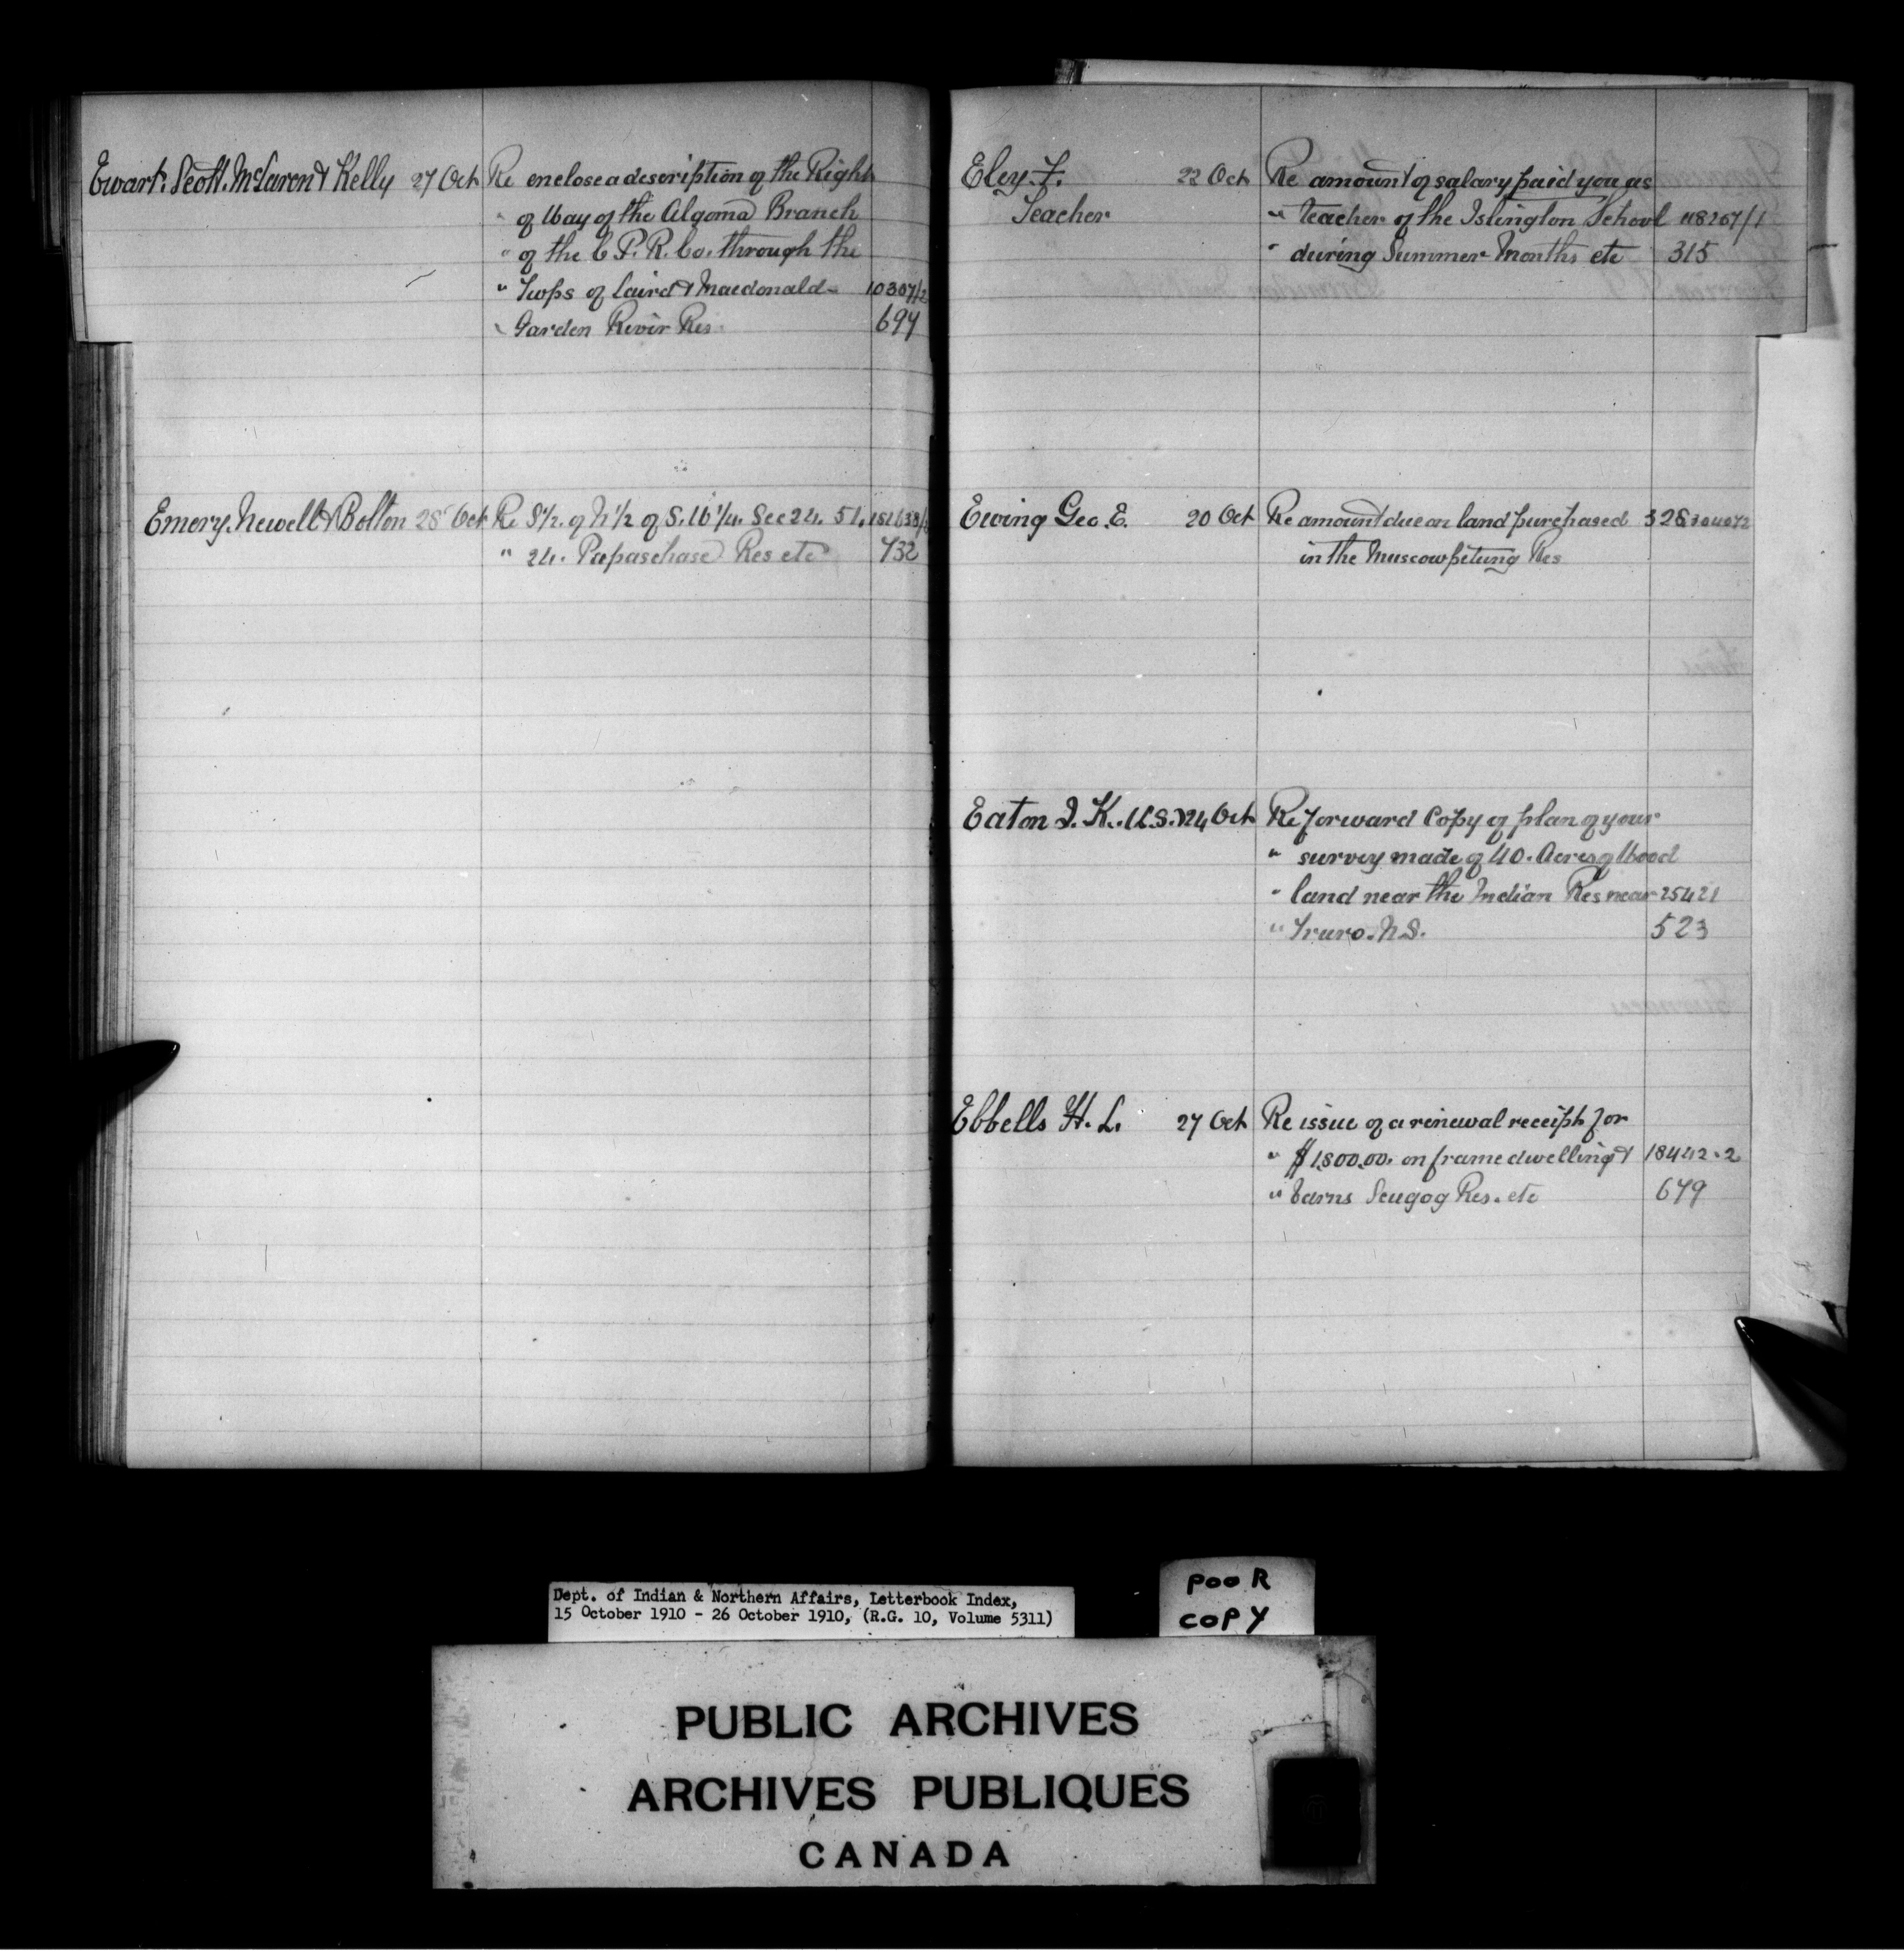 Ewart. Scott. McLaren & Kelly 27 Oct Re enclose a description of the Right
" of Way of the Algoma Branch
" of the C.P.R. Co. through the
" Twps of Laird & Macdonald - 10307/2
" Garden River Res 697
Emery. Newell & Bolton 28 Oct Re S½. of N½ of S.W¼. Sec 24. 51.
" 24. Papaschase Res etc 732
Eley. F. 22 Oct Re amount of salary paid you as
Teacher " teacher of the Islington School 118207/1
" during Summer Months etc 315
Ewing Geo. E. 20 Oct Re amount due on land purchased
in the Muscowpetung Res
Eaton I. K. 24 Oct Re forward Copy of plan of your
" survey made of 40. Acres of Wood
" land near the Indian Res near 25421
" Truro. N.S. 523
Ebbells H. L. 27 Oct Re issue of a renewal receipt for
" $1,800.00. on frame dwelling & 18442-2
" barns Scugog Res. etc 679
Dept. of Indian & Northern Affairs, Letterbook Index,
15 October 1910 - 26 October 1910, (R.G. 10, Volume 5311)
POOR
COPY
PUBLIC ARCHIVES
ARCHIVES PUBLIQUES
CANADA